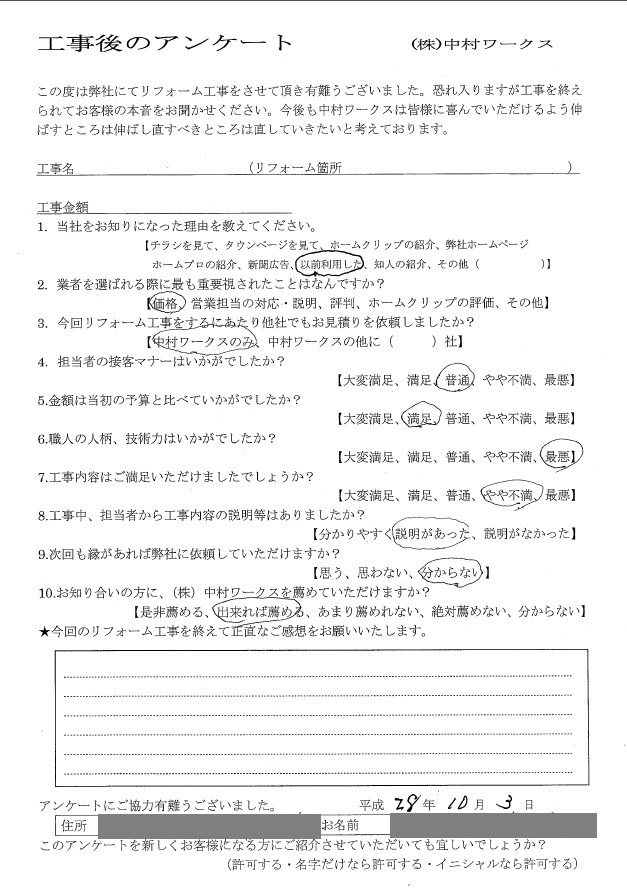 工事後のアンケート　(株)中村ワークス
この度は弊社にてリフォーム工事をさせて頂き有難うございました。恐れ入りますが工事を終え
られてお客様の本音をお聞かせください。今後も中村ワークスは皆様に喜んでいただけるよう伸
ばすところは伸ばし直すべきところは直していきたいと考えております。
工事名　（リフォーム箇所　）
工事金額
1．当社をお知りになった理由を教えてください。
【チラシを見て、タウンページを見て、ホームクリップの紹介、弊社ホームページ
ホームプロの紹介、新聞広告、以前利用した、知人の紹介、その他（　）】
2．業者を選ばれる際に最も重要視されたことはなんですか？
【価格、営業担当の対応・説明、評判、ホームクリップの評価、その他】
3．今回リフォーム工事をするにあたり他社でもお見積りを依頼しましたか？
【中村ワークスのみ、中村ワークスの他に（　）社】
4．担当者の接客マナーはいかがでしたか？
【大変満足、満足、普通、やや不満、最悪】
5.金額は当初の予算と比べていかがでしたか？
【大変満足、満足、普通、やや不満、最悪】
6.職人の人柄、技術力はいかがでしたか？
【大変満足、満足、普通、やや不満、最悪】
7.工事内容はご満足いただけましたでしょうか？
【大変満足、満足、普通、やや不満、最悪】
8.工事中、担当者から工事内容の説明等はありましたか？
【分かりやすく説明があった、説明がなかった】
9.次回も縁があれば弊社に依頼していただけますか？
【思う、思わない、分からない】
10.お知り合いの方に、（株）中村ワークスを薦めていただけますか？
【是非薦める、出来れば薦める、あまり薦めれない、絶対薦めない、分からない】
★今回のリフォーム工事を終えて正直なご感想をお願いいたします。
アンケートにご協力有難うございました。　平成 28 年 10 月 3 日
住所　お名前
このアンケートを新しくお客様になる方にご紹介させていただいても宜しいでしょうか？
（許可する・名字だけなら許可する・イニシャルなら許可する）